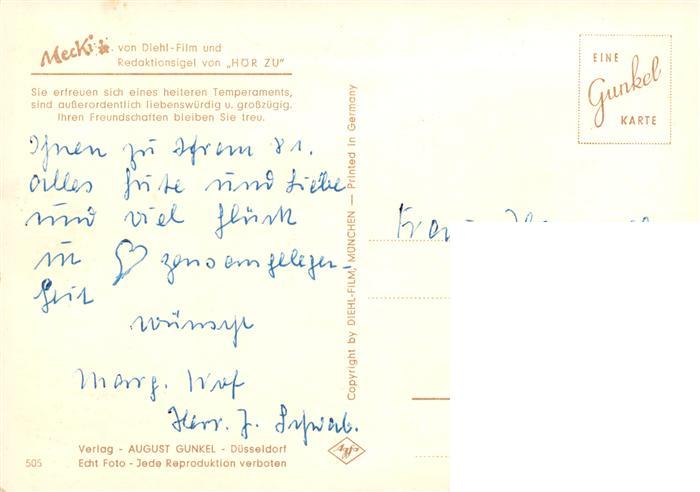 Mecki von Diehl-Film und
Redaktionsigel von „HÖR ZU"
Sie erfreuen sich eines heiteren Temperaments,
sind außerordentlich liebenswürdig u. großzügig.
Ihren Freundschaften bleiben Sie treu.
Ihnen zu Ihrem 81.
alles Gute und Liebe
und viel Glück
in ♡ zensangelegen-
heit
wünscht
Marg.
Herr. J. Schwab.
Verlag - AUGUST GUNKEL - Düsseldorf
505 Echt Foto - Jede Reproduktion verboten
Copyright by DIEHL-FILM, MÜNCHEN — Printed in Germany
EINE
Gunkel
KARTE